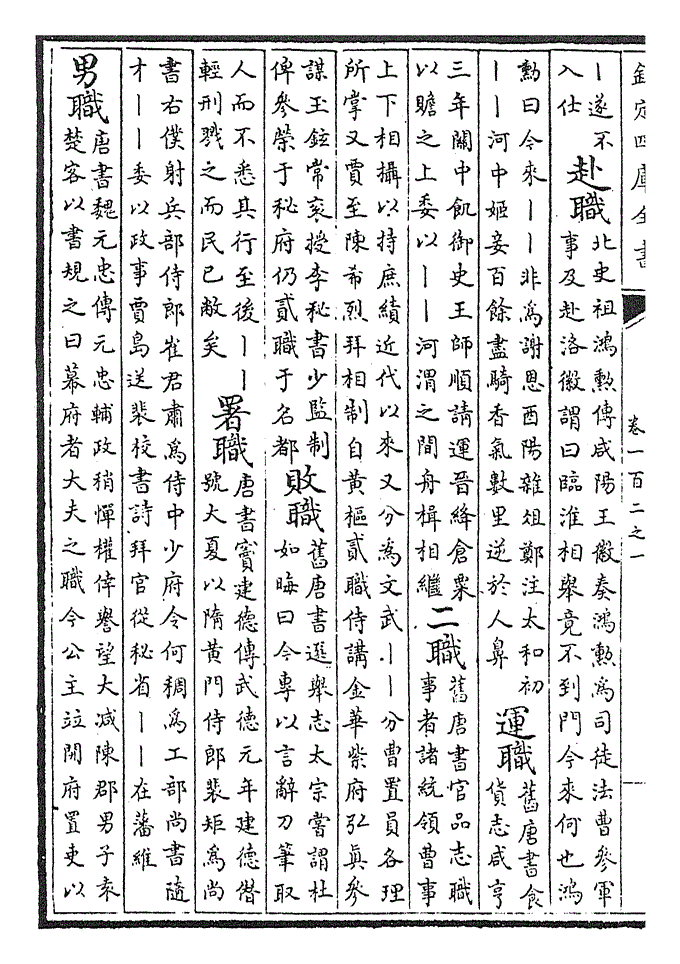 欽定四庫全書
卷一百二之一
丨遂不
入仕
赴職
北史祖鴻勲傳咸陽王徽奏鴻勲為司徒法曹參軍
事及赴洛徽謂曰臨淮相舉竟不到門今來何也鴻
勲曰今來丨丨非為謝恩酉陽雜俎鄭注太和初
丨丨河中姬妾百餘盡騎香氣數里逆於人鼻
運職
舊唐書食
貨志咸亨
三年關中飢御史王師順請運晉絳倉粟
以贍之上委以丨丨河渭之間舟楫相繼
二職
舊唐書官品志職
事者諸統領曹事
上下相攝以持庶績近代以來又分為文武丨丨分曹置員各理
所掌又賈至陳希烈拜相制自黄樞貳職侍講金華紫府弘真參
謀玉鉉常袞授李秘書少監制
俾參榮于秘府仍貳職于名都
敗職
舊唐書選舉志太宗嘗謂杜
如晦曰今專以言辭刀筆取
人而不悉其行至後丨丨
輕刑戮之而民已敝矣
署職
唐書竇建德傳武德元年建德僭
號大夏以隋黄門侍郎裴矩為尚
書右僕射兵部侍郎崔君肅為侍中少府令何稠為工部尚書隨
才丨丨委以政事賈島送裴校書詩拜官從秘省丨丨在藩維
男職
唐書魏元忠傳元忠輔政稍憚權倖譽望大減陳郡男子袁
楚客以書規之曰幕府者大夫之職今公主竝開府置吏以